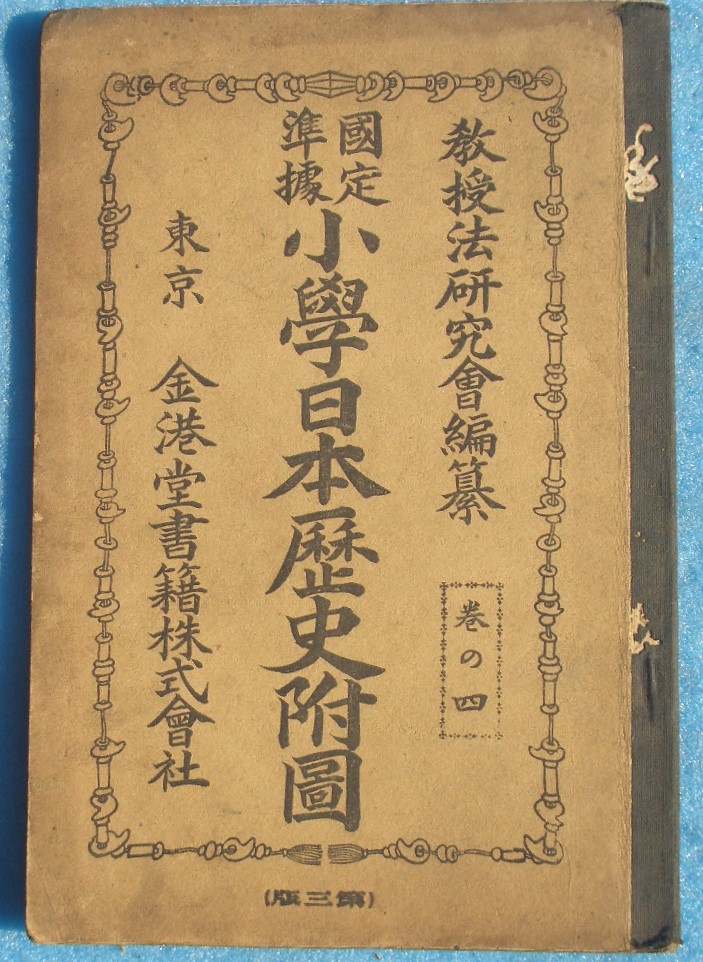 教授法研究會編纂
巻の四
國定
準據
小學日本歷史附圖
東京 金港堂書籍株式會社
(第三版)